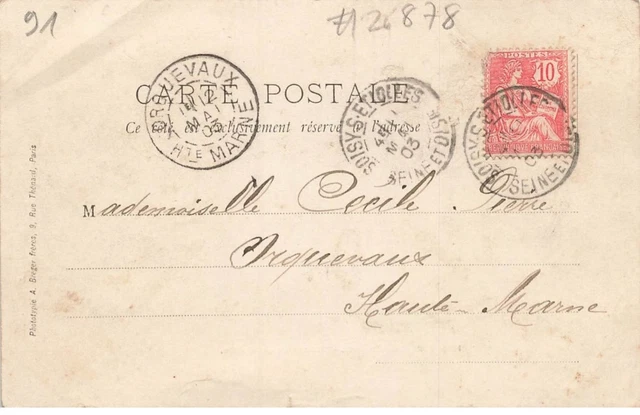 91
#26878
POSTES
10
RÉPUBLIQUE FRANÇAISE
ORQUEVAUX
MAI
03
HTE MARNE
SOISY-S-ETIOLLES
MAI
03
SEINE ET OISE
SOISY-S-ETIOLLES
03
SEINE ET OISE
CARTE POSTALE
Ce côté est exclusivement réservé à l'adresse
Mademoiselle Cecile Pierre
Orquevaux
Haute-Marne
Phototypie A. Berger Frères, 9, Rue Thénard, Paris